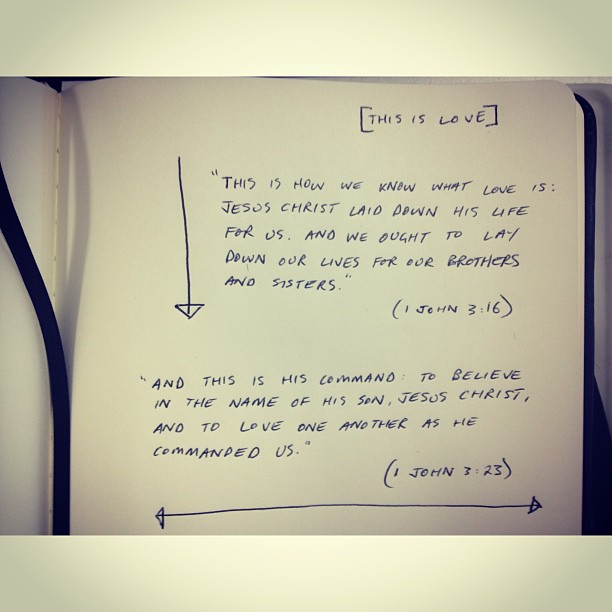 [THIS IS LOVE]
"THIS IS HOW WE KNOW WHAT LOVE IS:
JESUS CHRIST LAID DOWN HIS LIFE
FOR US. AND WE OUGHT TO LAY
DOWN OUR LIVES FOR OUR BROTHERS
AND SISTERS."
(1 JOHN 3:16)
"AND THIS IS HIS COMMAND: TO BELIEVE
IN THE NAME OF HIS SON, JESUS CHRIST,
AND TO LOVE ONE ANOTHER AS HE
COMMANDED US."
(1 JOHN 3:23)